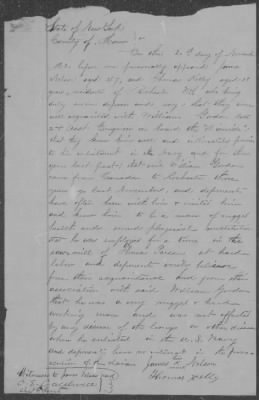 State of New York
County of Monroe } ss
On this 20th day of
before me personally appeared James
Nelson aged 47, and Thomas Kelly aged 38
years, residents of Rochester NY who being
duly sworn depose and say that they were
well acquainted with William Gordon late
2nd Asst Engineer on board the
that they knew him well and intimately prior
to his enlistment in the Navy and for three
years last past, that said William Gordon
came from Canada to Rochester three
years ago last November, and deponents
have often been with him & visited him
and knew him to be a man of rugged
health and sound physical constitution
that he was employed for a time in the
of at hard
labor and deponents verily believe
from their acquaintance and
association with said William Gordon
that he was a very rugged & hard
working man and was not affected
by any disease of the lungs or other disease
when he enlisted in the U.S. Navy
and deponents have no interest in the prosecution
of this claim
James Nelson
Thomas Kelly
Witnesses to James Nelson